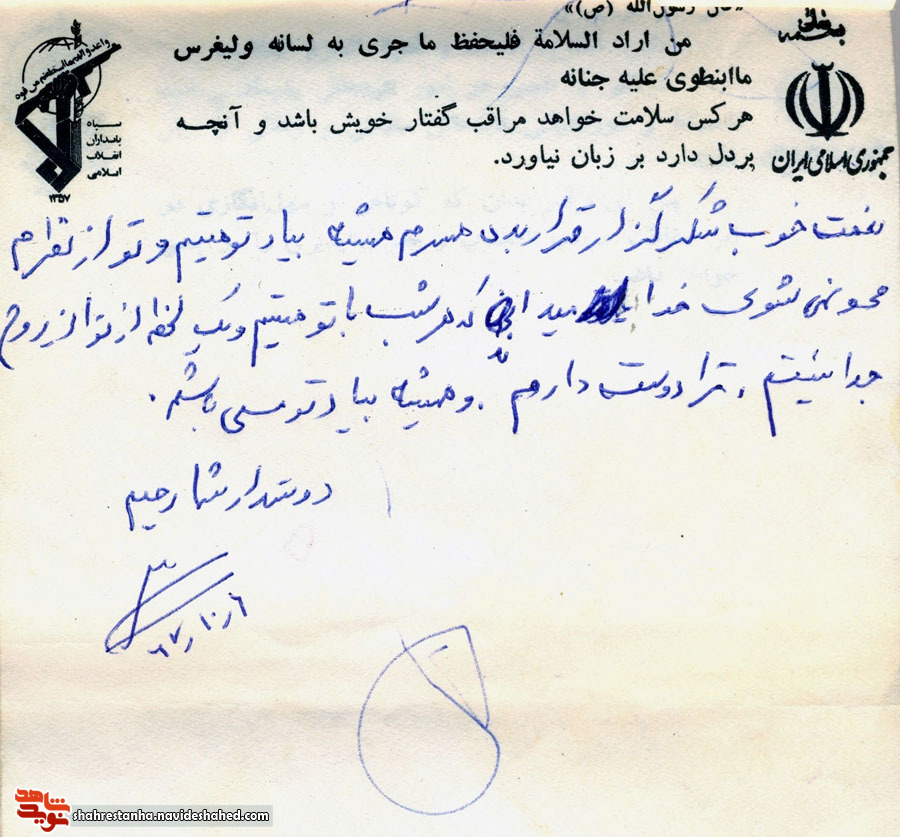 «قال رسول‌الله (ص)»
بسمه تعالی
من اراد السلامة فلیحفظ ما جری به لسانه ولیغرس
ماانطوی علیه جنانه
هرکس سلامت خواهد مراقب گفتار خویش باشد و آنچه
بردل دارد بر زبان نیاورد.
جمهوری اسلامی ایران
سپاه
پاسداران
انقلاب
اسلامی
۱۳۵۷
نعمت خوب شکرگزار قرار بده همسرم همیشه بیاد تو هستم و تو از نظرم
محو نمی شوی خدا میداند که هر شب با تو هستم و یک لحظه از تو از روح
جدا نیستم . ترا دوست دارم . و همیشه بیاد تو می باشم .
دوستدار شما رحیم
۶ر۱۰ر۶۷
نوید شاهد
shahrestanha.navideshahed.com